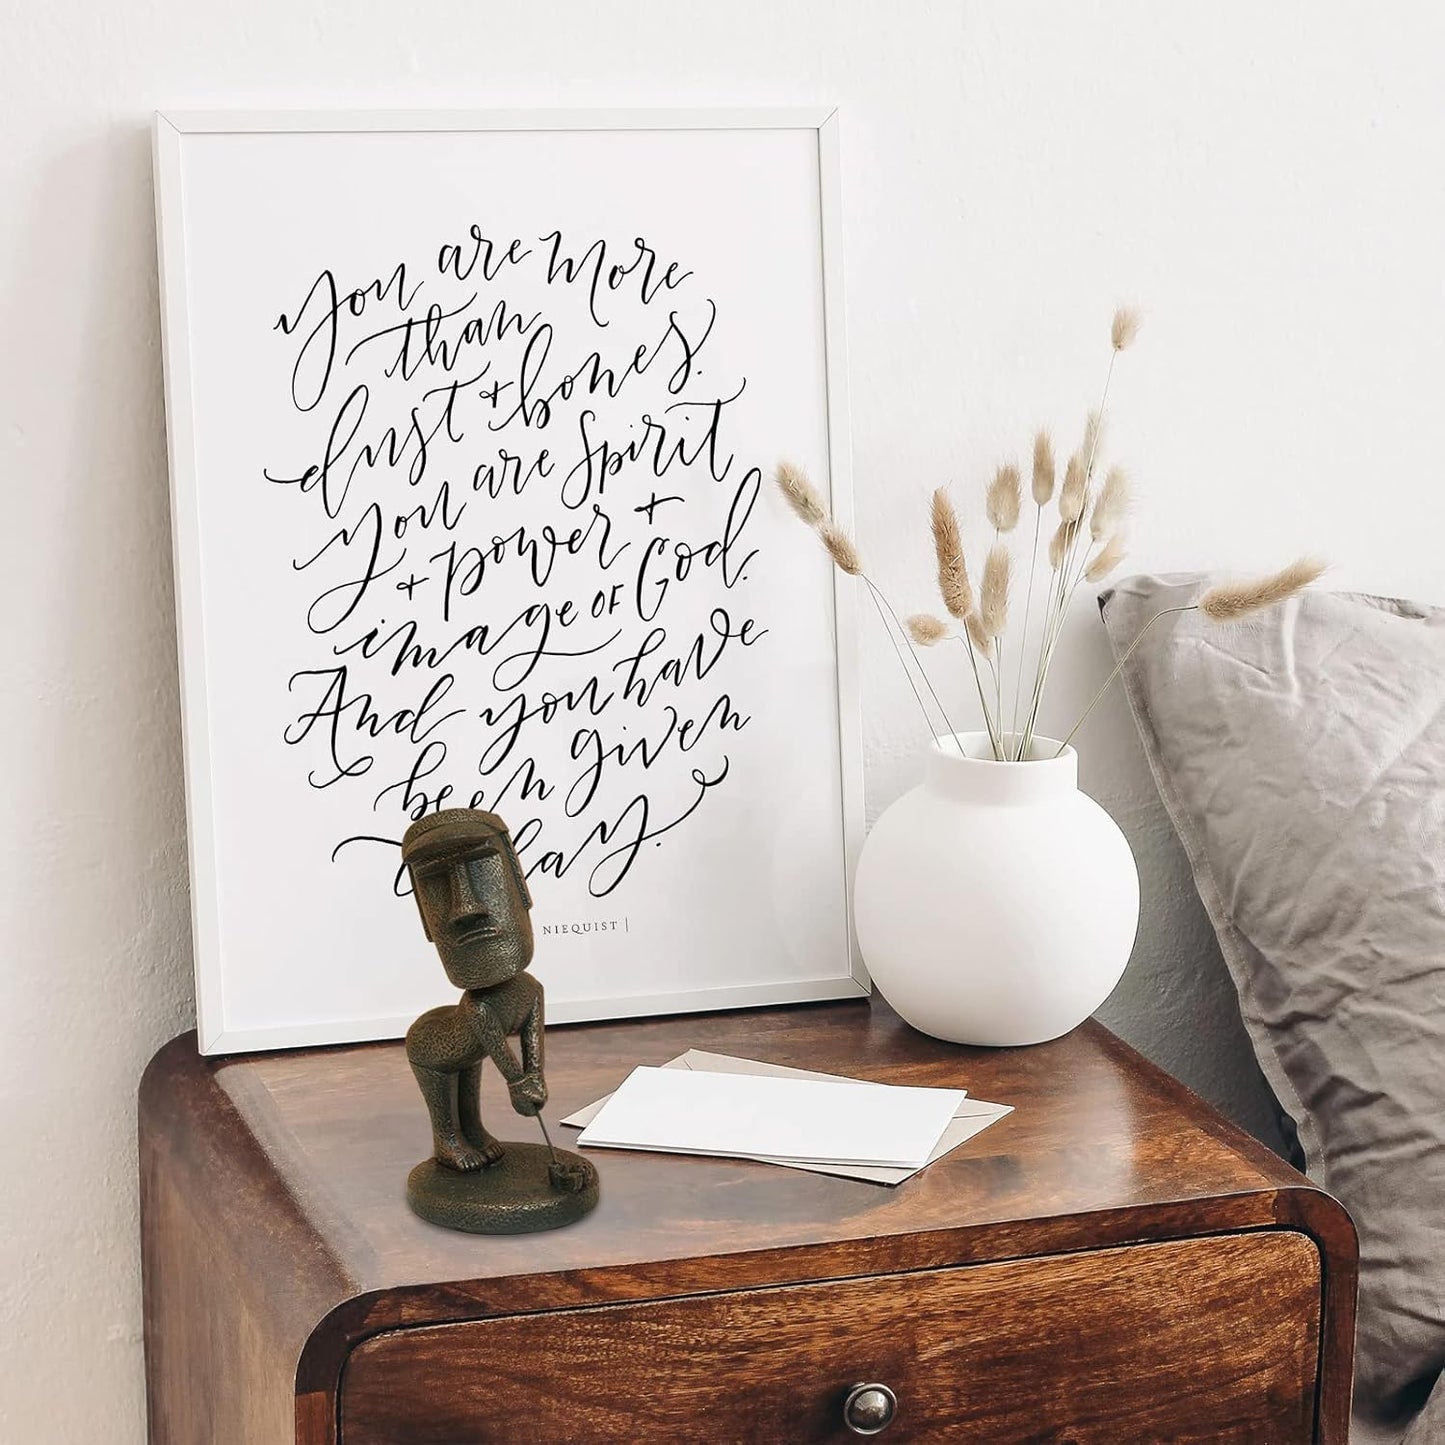 You are more
than
dust + bones.
You are Spirit
+ power +
image of God.
And you have
been given
NIEQUIST |